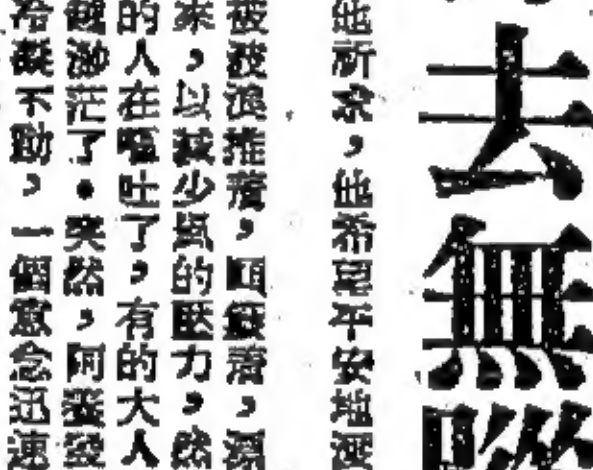 去無
他祈求，他希望平安地渡
被波浪推
來，以減少風的壓力，然
的人在嘔吐了，有的大人
越渺茫了。突然，阿
冷凝不動，一個意念迅速